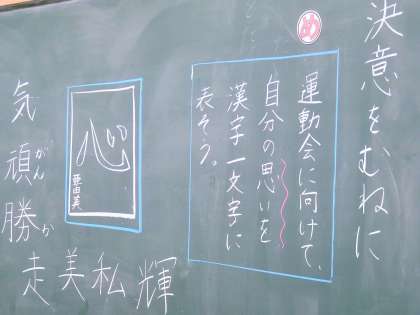 決意をむねに
め
運動会に向けて、
自分の思いを
漢字一文字に
表そう。
心
亜由美
気
頑
がん
勝
か
走美私輝